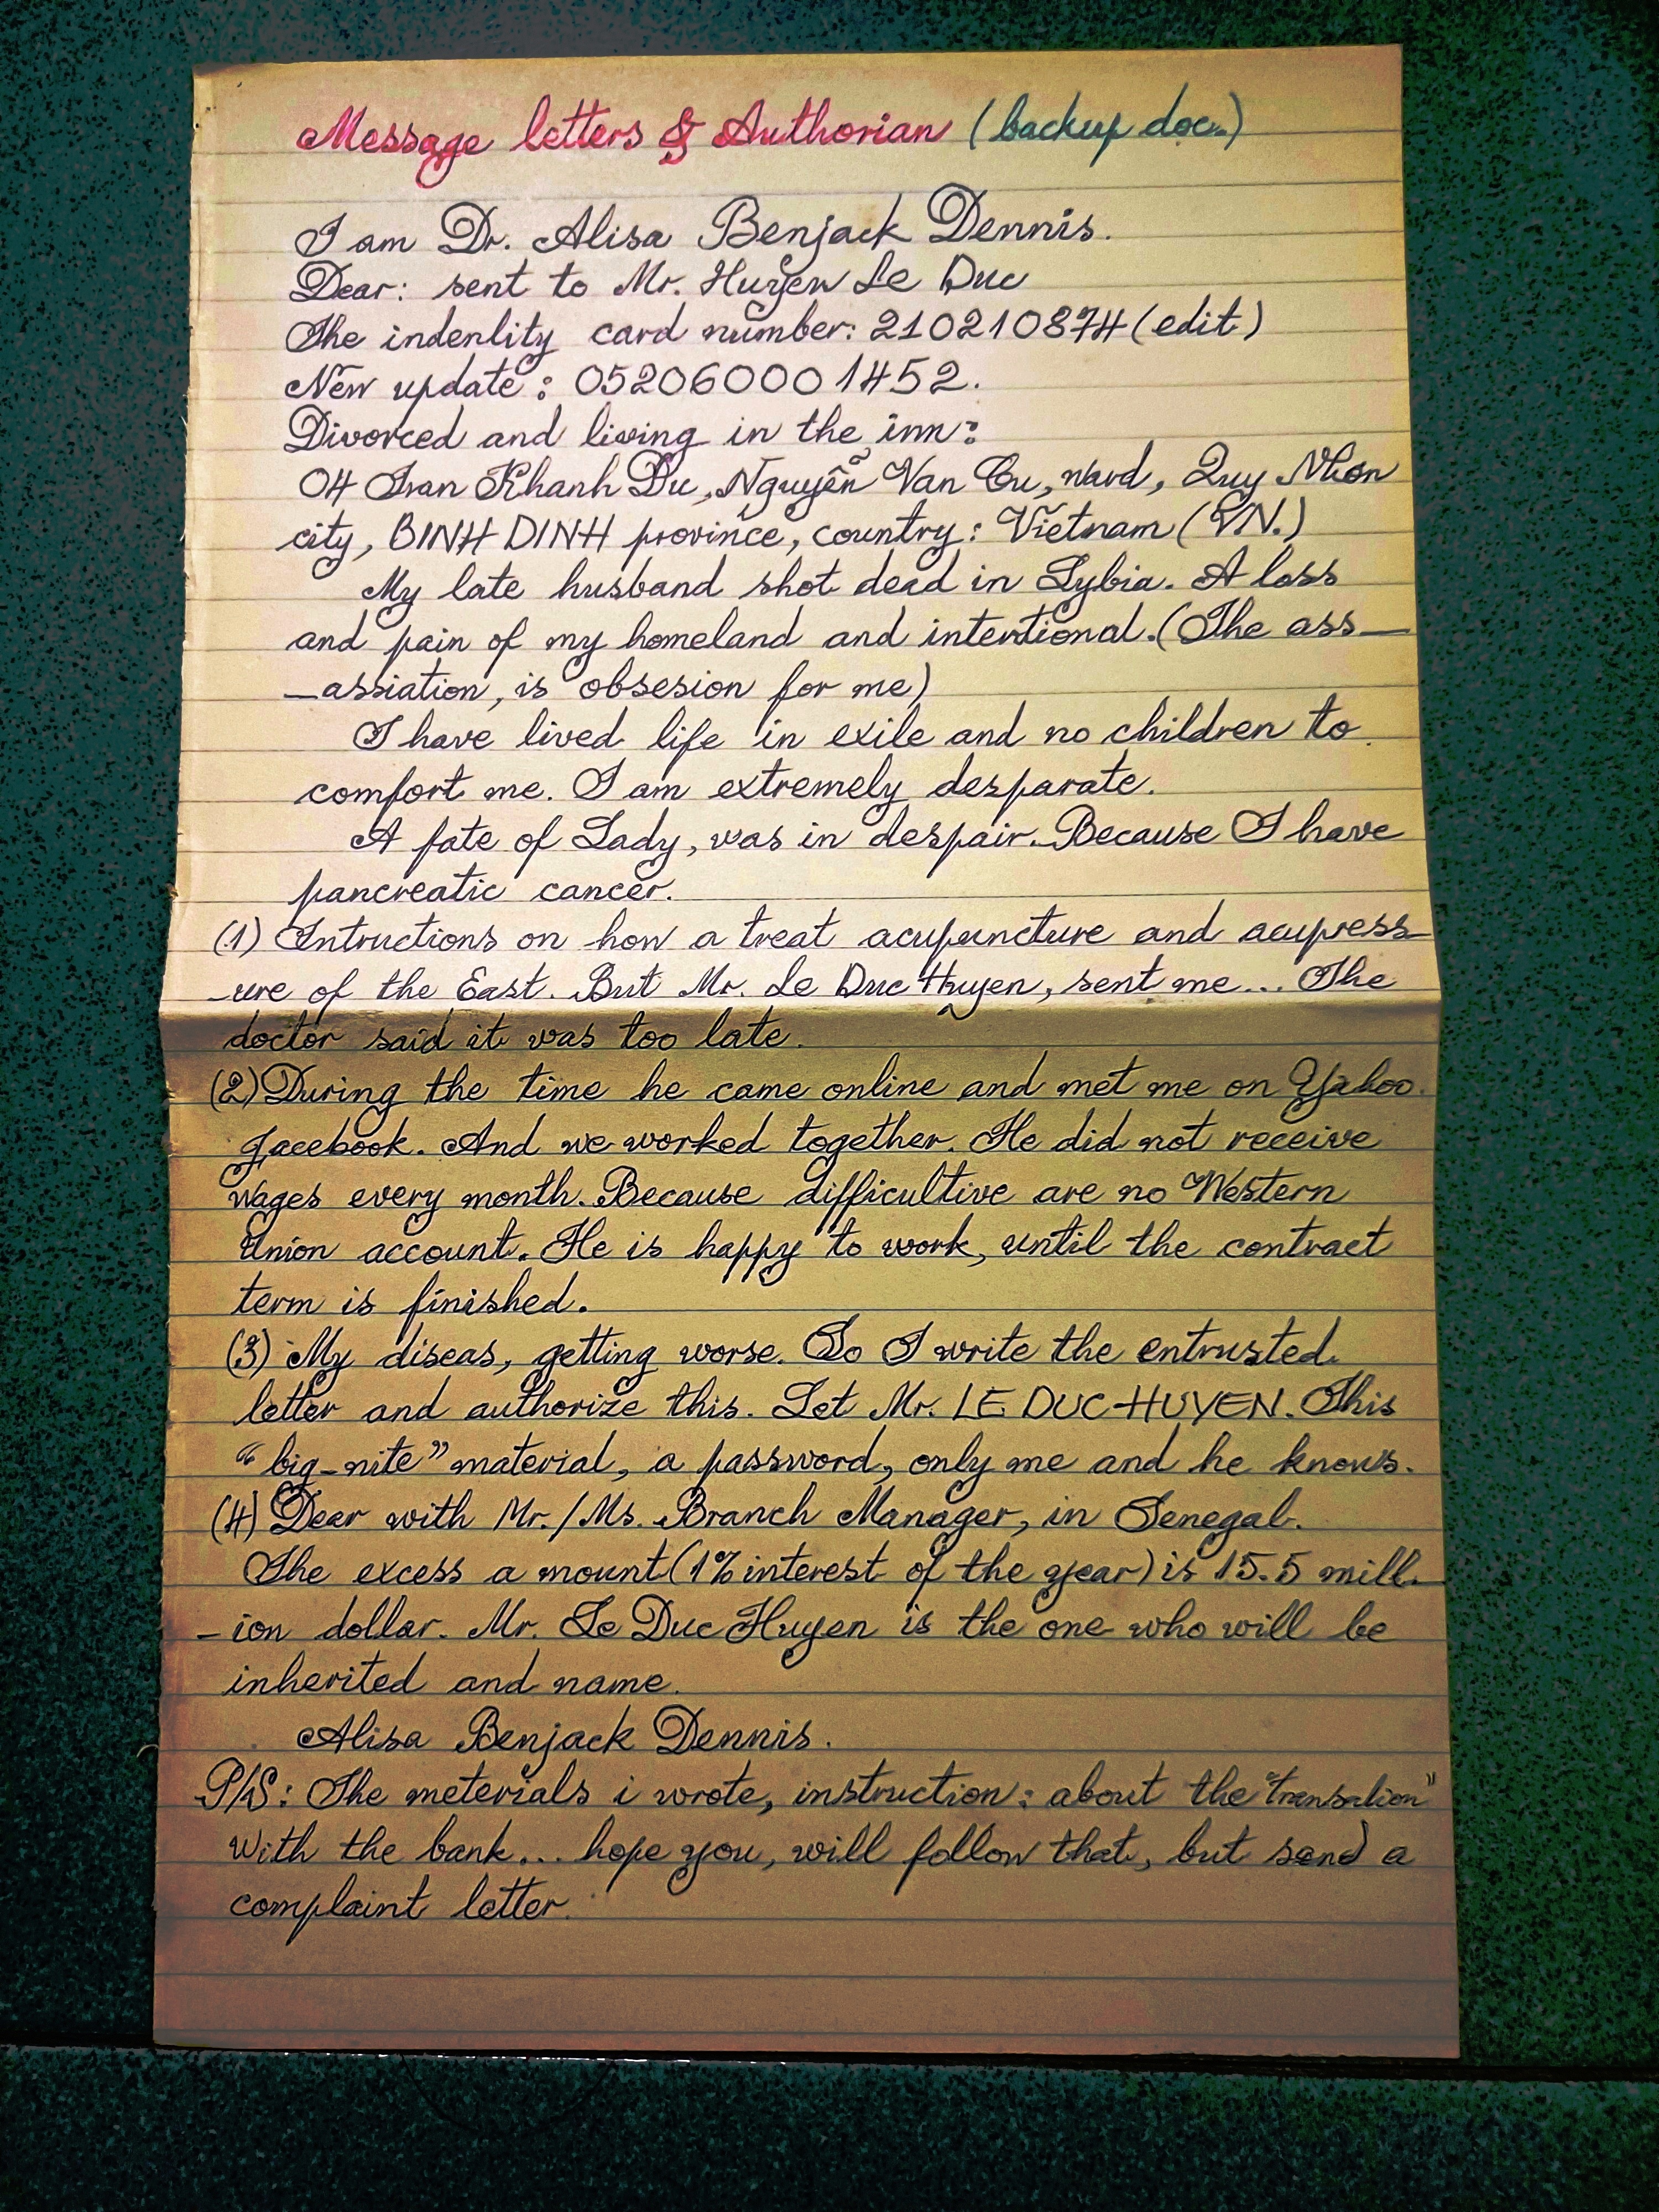 Message letters & Authorian (backup doc.)
I am Dr. Alisa Benjack Dennis.
Dear: sent to Mr. Huyen Le Duc
The indenlity card number: 210210874 (edit)
New update: 052060001452.
Divorced and living in the inn:
04 Tran Khanh Du, Nguyễn Van Cu, ward, Quy Nhon
city, BINH DINH province, country: Vietnam (VN.)
My late husband shot dead in Lybia. A loss
and pain of my homeland and intentional. (The ass-
-assiation, is obsesion for me)
I have lived life in exile and no children to
comfort me. I am extremely desparate.
A fate of Lady, was in despair. Because I have
pancreatic cancer.
(1) Intructions on how a treat acupuncture and acupress-
-ure of the East. But Mr. Le Duc Huyen, sent me... The
doctor said it was too late.
(2) During the time he came online and met me on Yahoo.
facebook. And we worked together. He did not receive
wages every month. Because difficultive are no Western
Union account. He is happy to work, until the contract
term is finished.
(3) My diseas, getting worse. So I write the entrusted
letter and authorize this. Let Mr. LE DUC HUYEN. This
"big-nite" material, a password, only me and he knows.
(4) Dear with Mr./Ms. Branch Manager, in Senegal.
The excess a mount (1% interest of the year) is 15.5 mill-
-ion dollar. Mr. Le Duc Huyen is the one who will be
inherited and name.
Alisa Benjack Dennis.
P/S: The meterials i wrote, instruction: about the "transalion"
With the bank... hope you, will follow that, but send a
complaint letter.